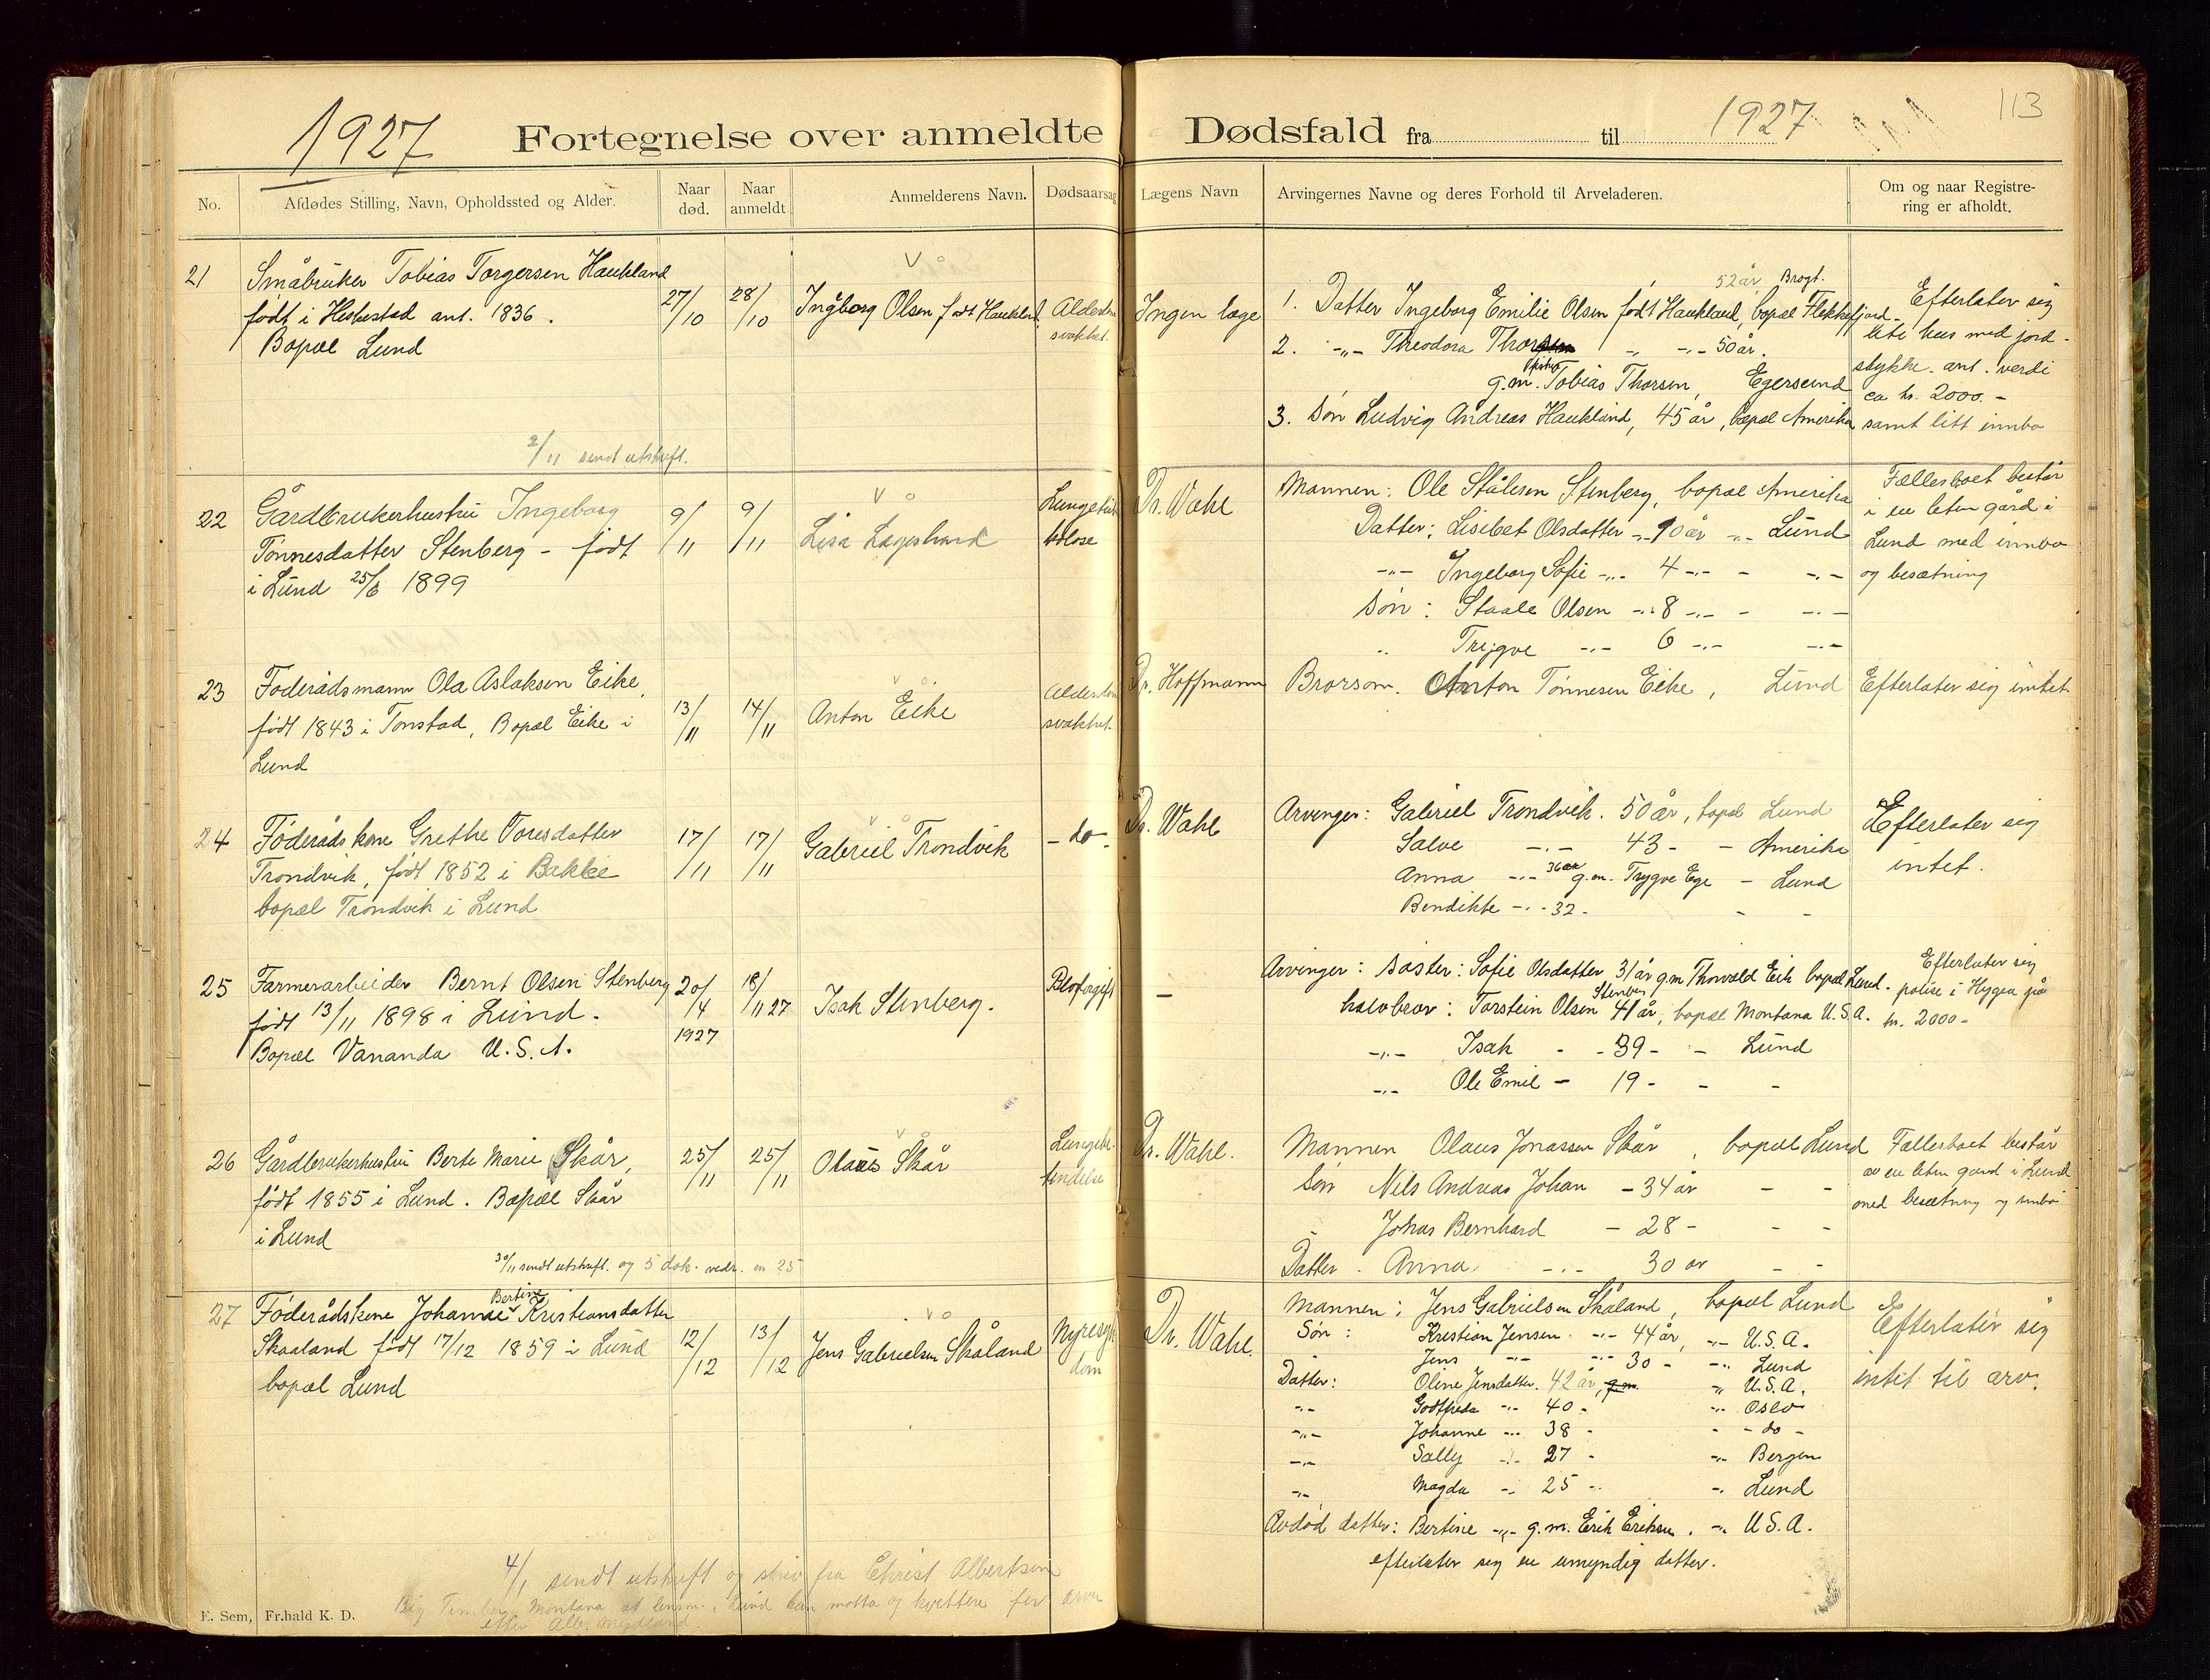 1927 Fortegnelse over anmeldte Dødsfald fra til 1927 113
No. Afdødes Stilling, Navn, Opholdssted og Alder. Naar død. Naar anmeldt Anmelderens Navn. Dødsaarsag Lægens Navn Arvingernes Navne og deres Forhold til Arveladeren. Om og naar Registrering er afholdt.
21 Småbruker Tobias Torgersen Haukland
født i Heskestad ant. 1836.
Bopæl Lund
27/10 28/10
V o
Ingborg Olsen født Haukland
Alderdoms
svakhet.
Ingen læge
52 år Brogt.
1. Datter Ingeborg Emilie Olsen født Haukland, bopæl Flekkefjord
2. -"- Theodora Thorsen " -"- 50 år.
g.m. Tobias Thorsen, Egersund
3. Søn Ludvig Andreas Haukland, 45 år, bopæl Amerika
Efterlater sig
lite hus med jord-
stykke. ant. verdi
ca kr. 2000.-
samt litt innbo
2/11 sendt utskrift.
22 Gårdbrukerhustru Ingeborg
Tønnesdatter Stenberg - født
i Lund 25/6 1899
9/11 9/11
V o
Lisa Lageshard
Lungetu
bolose
Dr. Wahl
Mannen: Ole Stålesen Stenberg, bopæl Amerika
Datter: Lisebet Olsdatter -"- 10 år -"- Lund
-"- Ingeborg Sofie -"- 4 -"- - -"-
Søn: Staale Olsen -"- 8 -"- - -"-
" Trygve -"- 6 -"- -"-
Fællesboet består
i en liten gård i
Lund med innbo
og besætning
23 Føderådsmann Ola Aslaksen Eike,
født 1843 i Tonstad, Bopæl Eike i
Lund
13/11 14/11
V o.
Anton Eike
Alderdoms
svakhet.
Dr. Hoffmann
Brorsøn. Anton Tønnesen Eike, Lund
Efterlater sig intet.
24 Føderådskone Grethe Toresdatter
Trondvik, født 1852 i Bakke
bopæl Trondvik i Lund
17/11 17/11
V o
Gabriel Trondvik
- do -
Dr. Wahl
Arvinger: Gabriel Trondvik. 50 år, bopæl Lund
Salve -"- 43 - - Amerika
Anna -"- 36 år g.m. Trygve Ege - Lund
Bendikte -"- 32 - - -
Efterlater sig
intet.
25 Farmerarbeider Bernt Olsen Stenberg
født 13/11 1898 i Lund.
Bopæl Vananda U.S.A.
20/4 1927 18/11 27
Isak Stenberg.
Blodforgift
-
Arvinger: Søster: Sofie Olsdatter 31 år g.m. Thorvald Eik bopæl Lund.
halvbror: Torstein Olsen Stenberg 41 år, bopæl Montana U.S.A.
-"- Isak - - 39 - - Lund
-"- Ole Emil - 19 - - -
Efterlater sig
polise i Hygea på
kr. 2000-
26 Gårdbrukerhustru Berte Marie Skår,
født 1855 i Lund. Bopæl Skår
i Lund
25/11 25/11
V o
Olaus Skår
Lungebe-
tendelse
Dr. Wahl.
Mannen Olaus Jonassen Skår, bopæl Lund
Søn Nils Andreas Johan - 34 år - -
" Johas Bernhard - 28 - - -
Datter. Anna -"- 30 år - -
Fællesboet består
av en liten gård i Lund
med besætning og innbo
30/11 sendt utskrift. og 5 dok. vedr. en 25
27 Føderådskone Johanne Bertine Kristiansdatter
Skaaland født 17/12 1859 i Lund
bopæl Lund
12/12 13/12
V o
Jens Gabrielsen Skåland
Nyresyk
dom
Dr. Wahl.
Mannen: Jens Gabrielsen Skåland, bopæl Lund
Søn: Kristian Jensen -"- 44 år, -"- U.S.A.
" Jens -"- -"- 30 - -"- Lund
Datter: Oline Jensdatter. 42 år, g.m. " U.S.A.
-"- Godtfreda -"- 40 - -"- Oslo
-"- Johanne -"- 38 - - - do -
-"- Sally -"- 27 - -"- Bergen
-"- Magda -"- 25 - -"- Lund
Avdød datter: Bertine -"- g.m. Erik Eriksen. -"- U.S.A.
efterlater sig en umyndig datter.
Efterlater sig
intet til arv.
4/1 sendt utskrift og skriv fra Christ Albertsen
Big Timber, Montana at lensm. i Lund kan motta og kvittere for arven
efter Alb.
E. Sem, Fr.hald K. D.